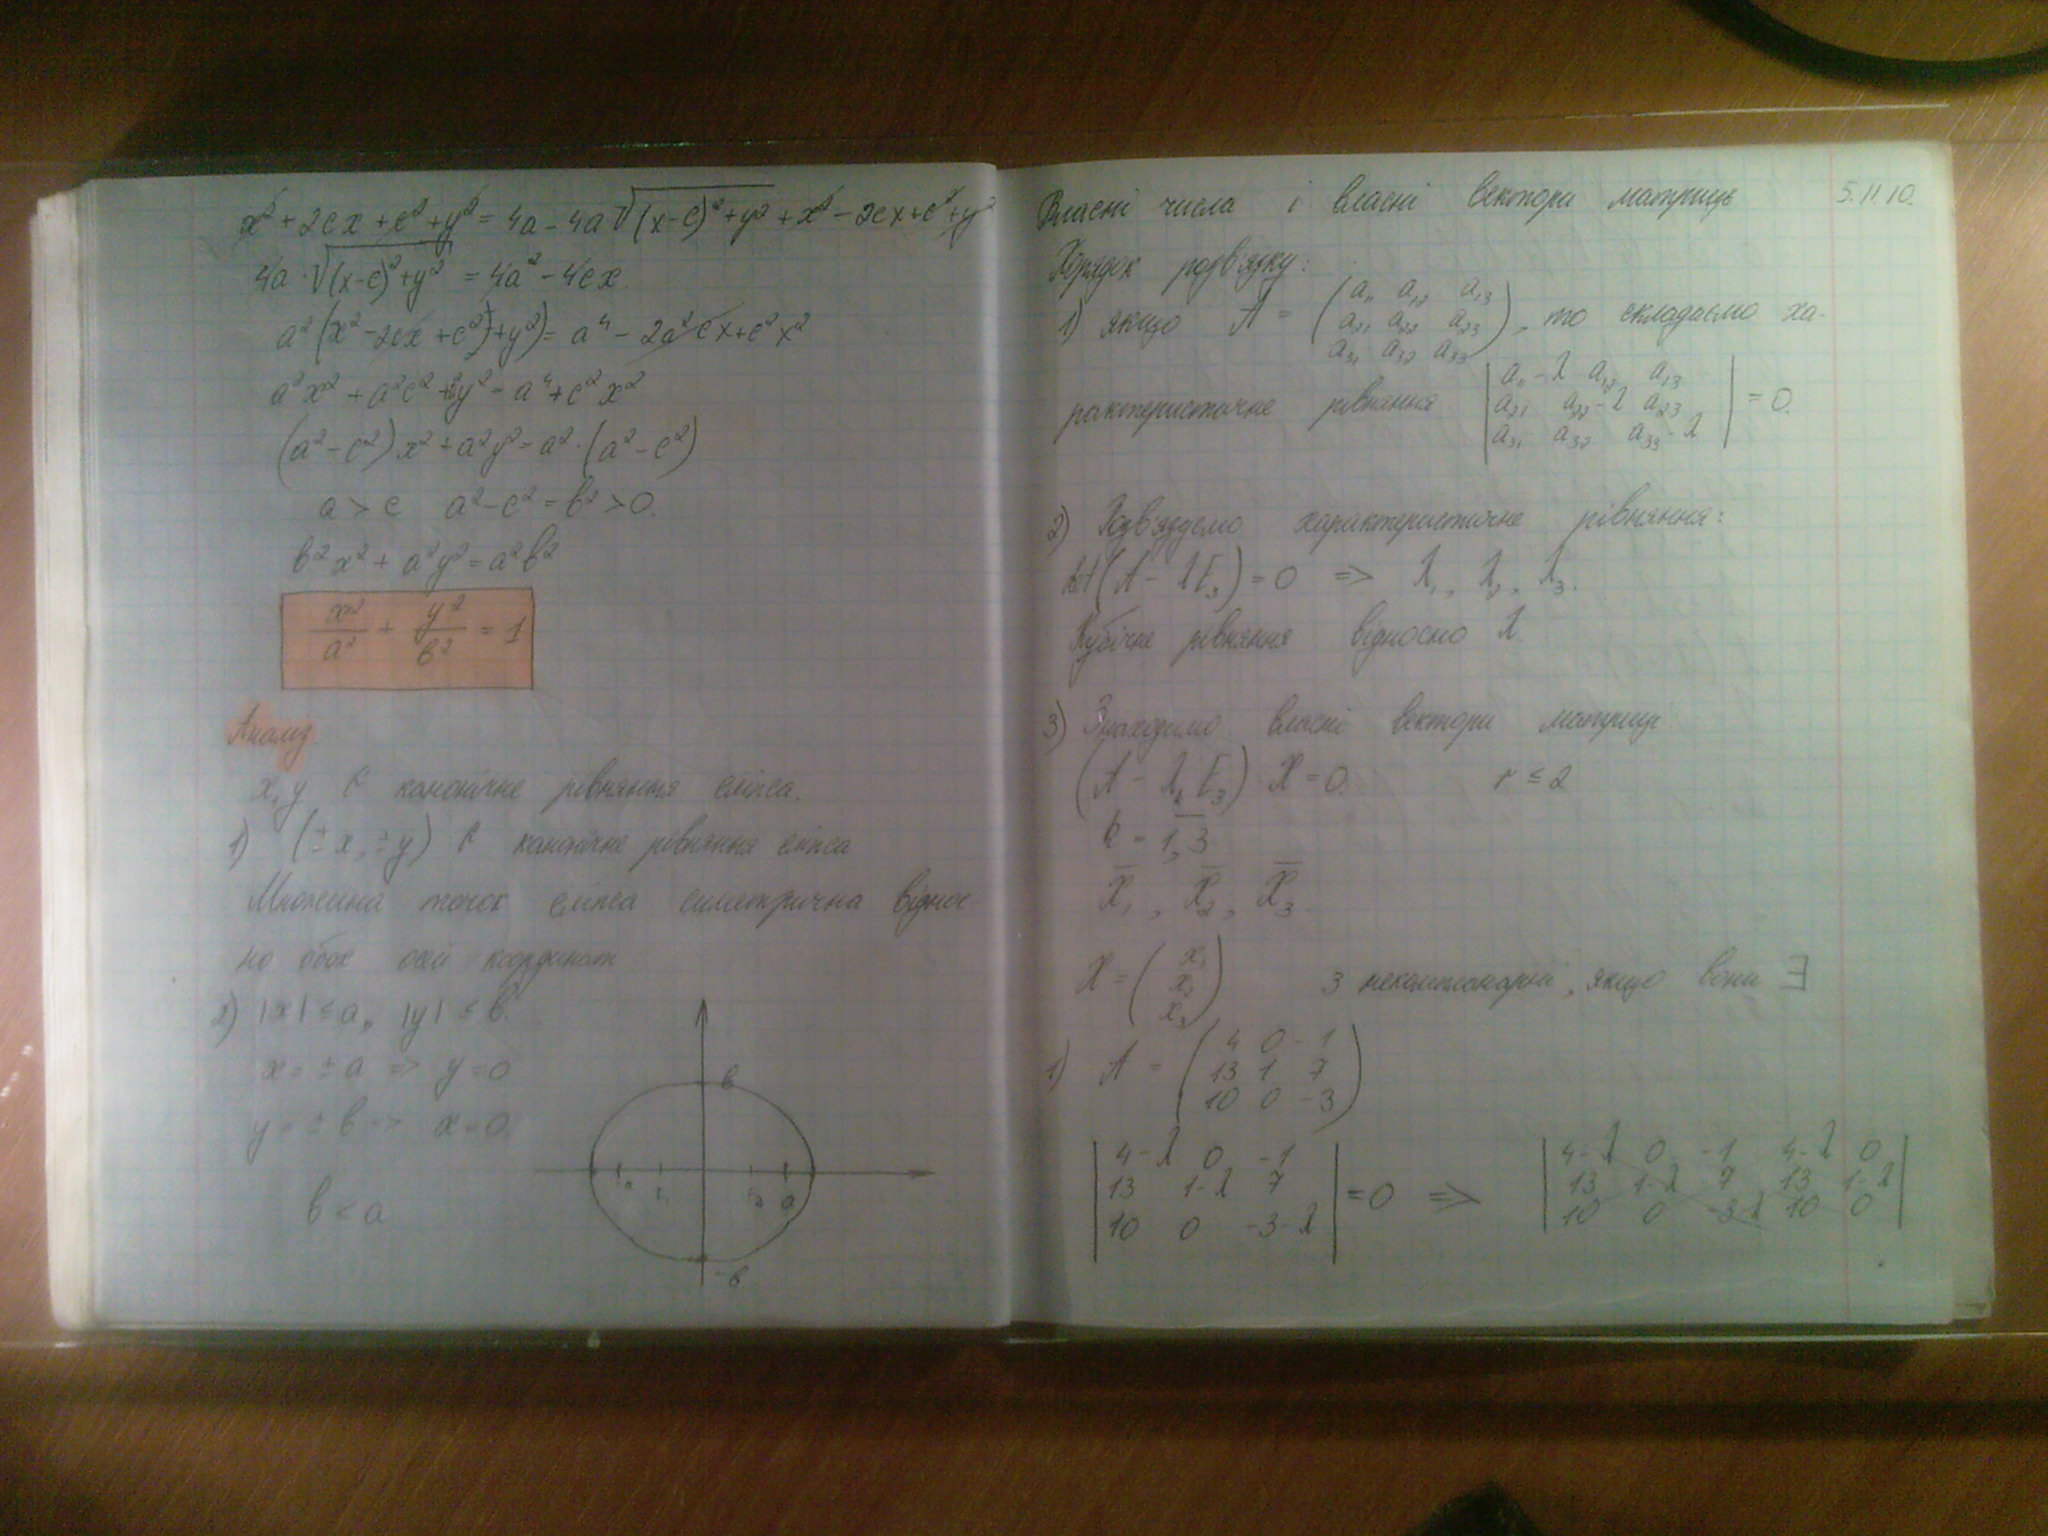 x² + 2cx + c² + y² = 4a - 4a√(x-c)² + y² + x² - 2cx + c² + y²
4a · √(x-c)² + y² = 4a² - 4cx.
a² (x² - 2cx + c²) + y²) = a⁴ - 2a²cx + c²x²
a²x² + a²c² + y² = a⁴ + c²x²
(a² - c²) x² + a²y² = a² · (a² - c²)
a > c a² - c² = b² > 0.
b²x² + a²y² = a²b²
x²/a² + y²/b² = 1
Аналіз
x, y є канонічне рівняння еліпса.
1) (± x, ± y) є канонічне рівняння еліпса
Множина точок еліпса симетрична віднос-
но обох осей координат
2) |x| ≤ a, |y| ≤ b.
x = ± a => y = 0
y = ± b => x = 0.
b < a
b
a
-b
Власні числа і власні вектори матриць 5.11.10.
Порядок розв'язку:
1) якщо A = (a₁₁ a₁₂ a₁₃
a₂₁ a₂₂ a₂₃
a₃₁ a₃₂ a₃₃), то складаємо ха-
рактеристичне рівняння |a₁₁-λ a₁₂ a₁₃
a₂₁ a₂₂-λ a₂₃
a₃₁ a₃₂ a₃₃-λ| = 0.
2) Розв'язуємо характеристичне рівняння:
det(A - λE₃) = 0 => λ₁, λ₂, λ₃.
Кубічне рівняння відносно λ.
3) Знаходимо власні вектори матриці
(A - λₖE₃) · X = 0. r ≤ 2
k = 1,3
X̄₁, X̄₂, X̄₃.
X = (x₁
x₂
x₃) 3 некомпланарні, якщо вони ∃
1) A = (4 0 -1
13 1 7
10 0 -3)
|4-λ 0 -1
13 1-λ 7
10 0 -3-λ| = 0 =>
|4-λ 0 -1 4-λ 0
13 1-λ 7 13 1-λ
10 0 -3-λ 10 0|